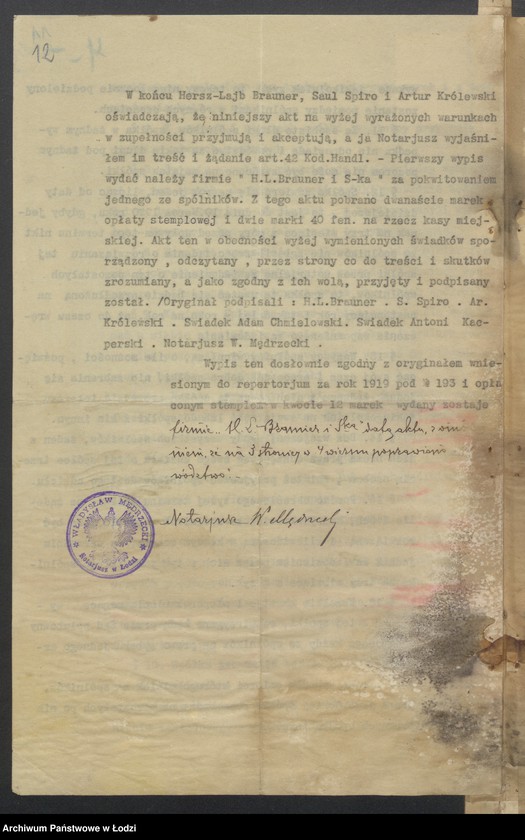 12
W końcu Hersz-Lajb Brauner, Saul Spiro i Artur Królewski
oświadczają, żę niniejszy akt na wyżej wyrażonych warunkach
w zupełności przyjmują i akceptują, a ja Notarjusz wyjaśni-
łem im treść i żądanie art.42 Kod.Handl. - Pierwszy wypis
wydać należy firmie " H.L.Brauner i S-ka " za pokwitowaniem
jednego ze spólników. Z tego aktu pobrano dwanaście marek
opłaty stemplowej i dwie marki 40 fen. na rzecz kasy miej-
skiej. Akt ten w obecności wyżej wymienionych świadków spo-
rządzony , odczytany , przez strony co do treści i skutków
zrozumiany, a jako zgodny z ich wolą, przyjęty i podpisany
został. /Oryginał podpisali : H.L.Brauner . S. Spiro . Ar.
Królewski . Swiadek Adam Chmielowski. Swiadek Antoni Kac-
perski . Notarjusz W. Mędrzecki .
Wypis ten dosłownie zgodny z oryginałem wnie-
sionym do repertorjum za rok 1919 pod № 193 i opła
conym stemplem w kwocie 12 marek wydany zostaje
firmie "H. L. Brauner i Ska" dołącz aktu, z om
nieni, że na 3 stronie w 4 wierszu poprawiono
WŁADYSŁAW MĘDRZECKI
Notarjusz w Łodzi
Notarjusz W. Mędrzecki
Archiwum Państwowe w Łodzi